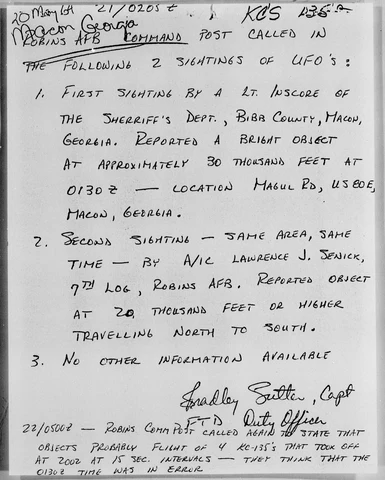 20 May 64 21/0205 Z KCS 135's
Macon Georgia
ROBINS AFB COMMAND POST CALLED IN
THE FOLLOWING 2 SIGHTINGS OF UFO'S:
1. FIRST SIGHTING BY A LT. INSCORE OF
THE SHERRIFF'S DEPT., BIBB COUNTY, MACON,
GEORGIA. REPORTED A BRIGHT OBJECT
AT APPROXIMATELY 30 THOUSAND FEET AT
0130 Z — LOCATION MAGUL RD, US 80E,
MACON, GEORGIA.
2. SECOND SIGHTING — SAME AREA, SAME
TIME — BY A/1C LAWRENCE J. SENICK,
7TH LOG, ROBINS AFB. REPORTED OBJECT
AT 20 THOUSAND FEET OR HIGHER
TRAVELLING NORTH TO SOUTH.
3. NO OTHER INFORMATION AVAILABLE
Bradley Sutter, Capt
FTD Duty Officer
22/0500Z — ROBINS COMM POST CALLED AGAIN TO STATE THAT
OBJECTS PROBABLY FLIGHT OF 4 KC-135'S THAT TOOK OFF
AT 2002 AT 15 SEC. INTERVALS — THEY THINK THAT THE
0130Z TIME WAS IN ERROR